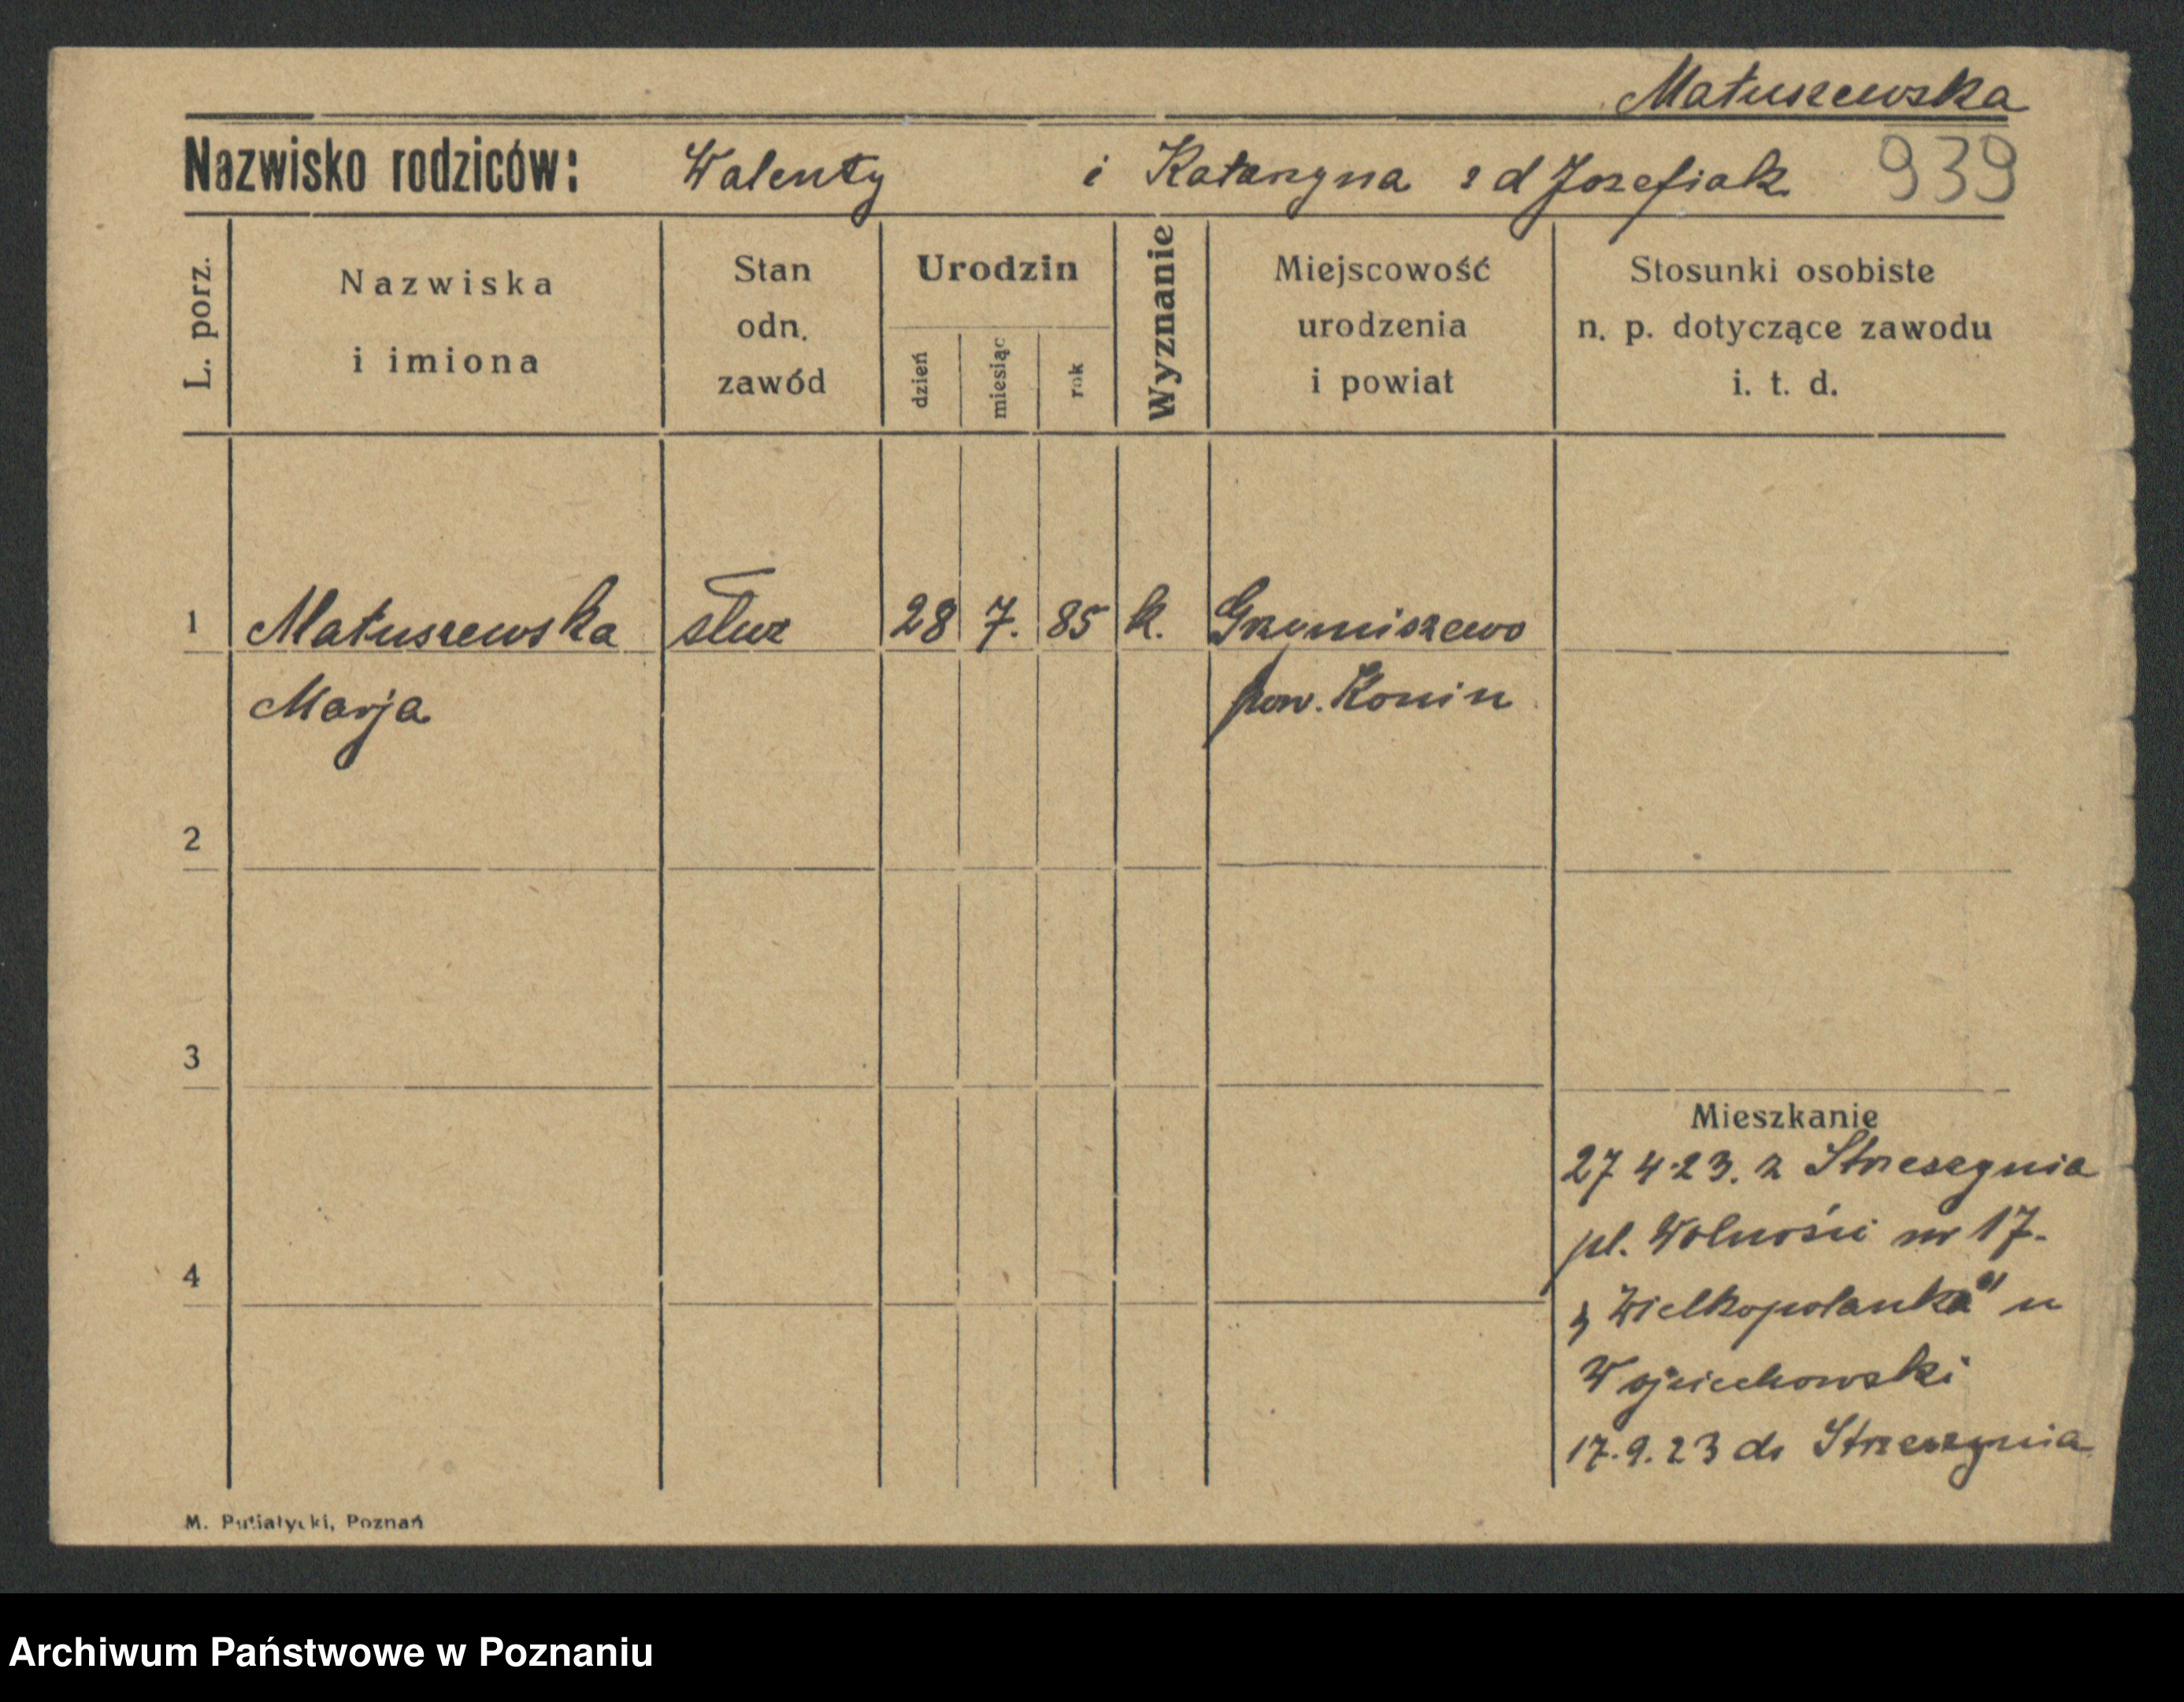 Matuszewska
Nazwisko rodziców: Walenty i Katarzyna z d Jozefiak 939
L. porz.
Nazwiska
i imiona
Stan
odn.
zawód
Urodzin
dzień
miesiąc
rok
Wyznanie
Miejscowość
urodzenia
i powiat
Stosunki osobiste
n. p. dotyczące zawodu
i. t. d.
1 Matuszewska służ 28 7. 85 k. Grzymiszewo
Marja pow. Konin
2
3
Mieszkanie
27 4.23. z Strzeszynia
pl. Wolności nr 17.
4
„Wielkopolanka" u
Wojciechowski
17.9.23 do Strzeszynia
M. Putiatycki, Poznań
Archiwum Państwowe w Poznaniu